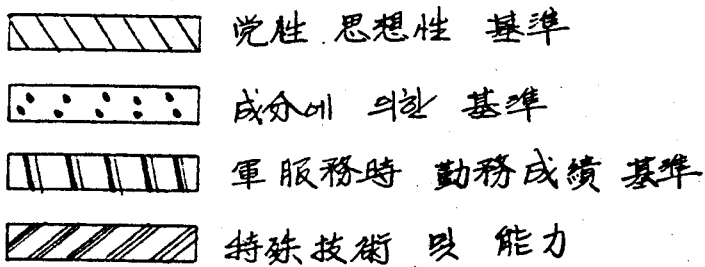 党性 思想性 基準
成分에 의한 基準
軍服務時 勤務成績 基準
特殊技術 및 能力